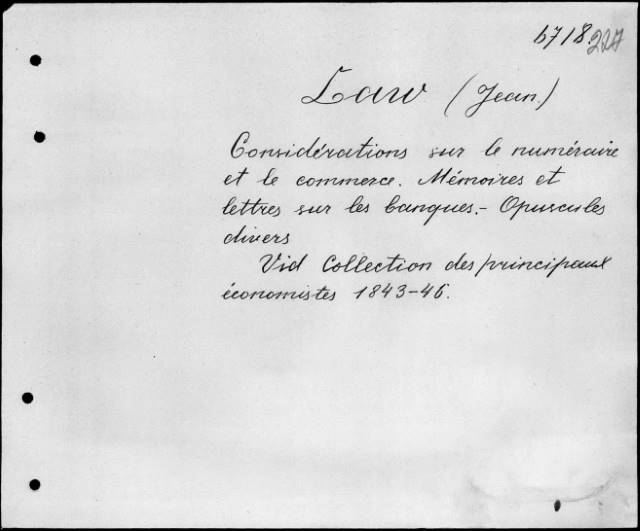 b718.
Law (Jean.)
Considérations sur le numéraire
et le commerce. Mémoires et
lettres sur les banques.- Opuscules
divers
Vid Collection des principaux
économistes 1843-46.